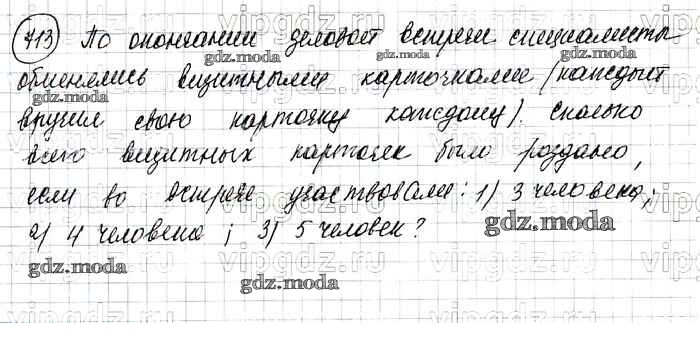 713 По окончании деловой встречи специалисты
обменялись визитными карточками (каждый
вручил свою карточку каждому). Сколько
всего визитных карточек было роздано,
если во встрече участвовали: 1) 3 человека;
2) 4 человека; 3) 5 человек?
gdz.moda
gdz.moda
gdz.moda
gdz.moda
gdz.moda
gdz.moda
gdz.moda
gdz.moda
vipgdz.ru
vipgdz.ru
vipgdz.ru